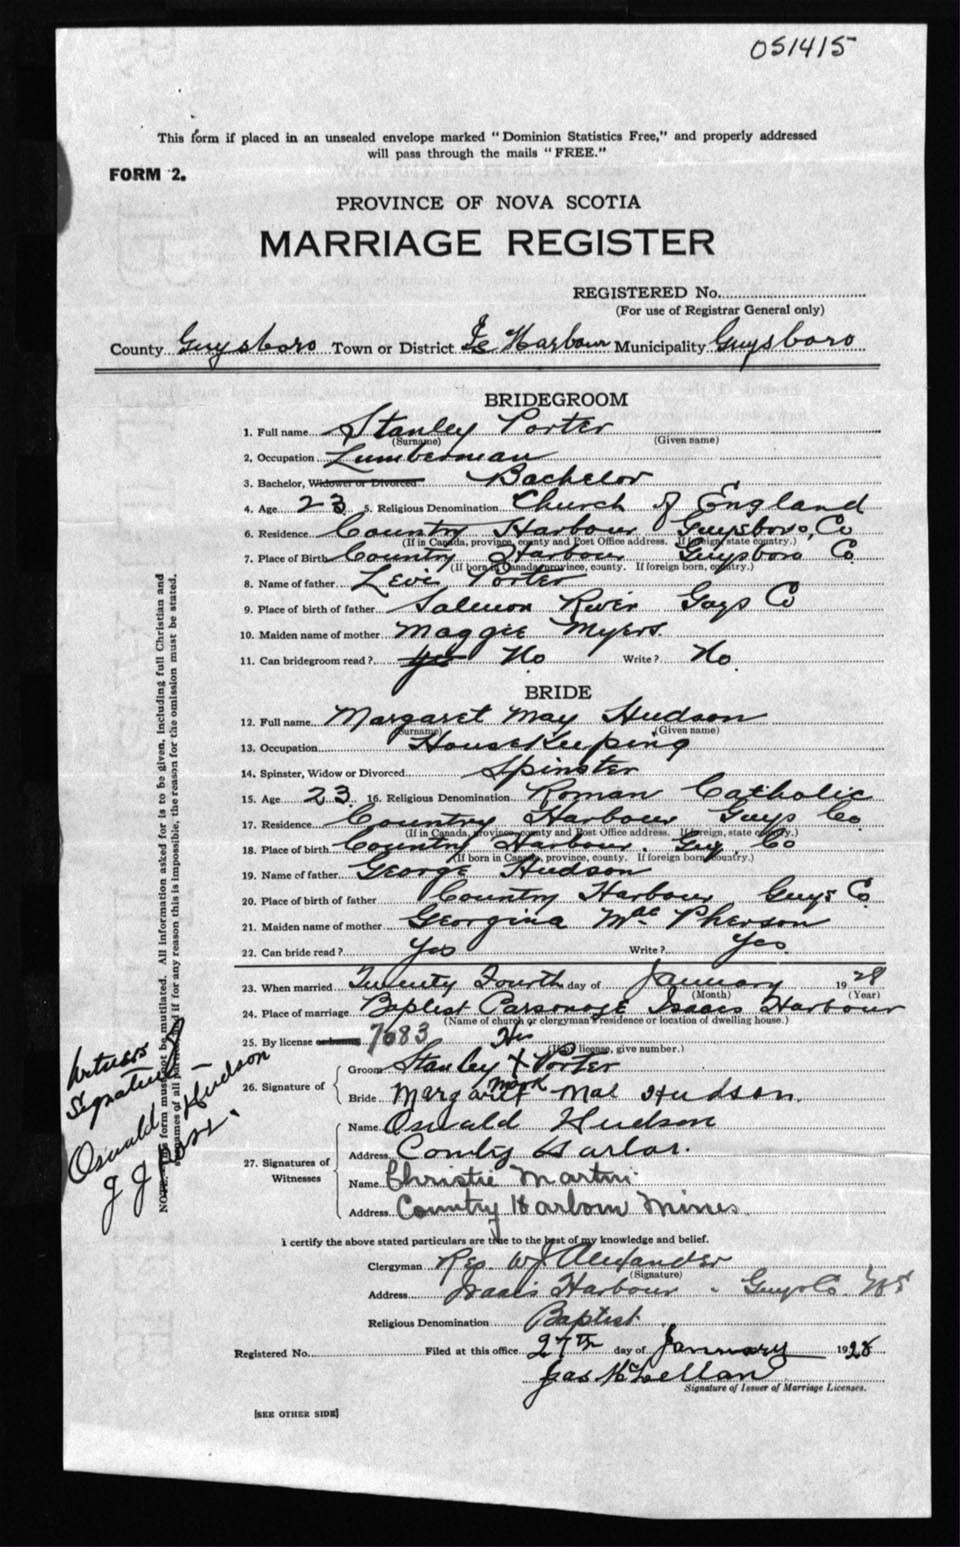 051415
This form if placed in an unsealed envelope marked "Dominion Statistics Free," and properly addressed
will pass through the mails "FREE."
FORM 2.
PROVINCE OF NOVA SCOTIA
MARRIAGE REGISTER
REGISTERED No.
(For use of Registrar General only)
County Guysboro Town or District Is Harbour Municipality Guysboro
BRIDEGROOM
1. Full name Stanley Porter
(Surname) (Given name)
2. Occupation Lumberman
3. Bachelor, Widower or Divorced Bachelor
4. Age 23 5. Religious Denomination Church of England
6. Residence Country Harbour Guysboro, Co
(If in Canada, province, county and Post Office address. If foreign, state country.)
7. Place of Birth Country Harbour Guysboro Co
(If born in Canada, province, county. If foreign born, country.)
8. Name of father Levi Porter
9. Place of birth of father Salmon River Guys Co
10. Maiden name of mother Maggie Myers.
11. Can bridegroom read? Yes No Write? No.
BRIDE
12. Full name Margaret May Hudson
(Surname) (Given name)
13. Occupation HouseKeeping
14. Spinster, Widow or Divorced Spinster
15. Age 23. 16. Religious Denomination Roman Catholic
17. Residence Country Harbour Guys Co
(If in Canada, province, county and Post Office address. If foreign, state country.)
18. Place of birth Country Harbour. Guy. Co
(If born in Canada, province, county. If foreign born, country.)
19. Name of father George Hudson
20. Place of birth of father Country Harbour Guys Co
21. Maiden name of mother Georgina MacPherson
22. Can bride read? Yes Write? Yes.
23. When married Twenty Fourth day of January 1928
(Month) (Year)
24. Place of marriage Baptist Parsonage Isaacs Harbour
(Name of church or clergyman's residence or location of dwelling house.)
25. By license 7683
(If by license, give number.)
His
26. Signature of
Groom Stanley X Porter
mark
Bride Margaret Mae Hudson.
27. Signatures of Witnesses
Name Oswald Hudson
Address Country Harbor.
Name Christie Martin
Address Country Harbour Mines
I certify the above stated particulars are true to the best of my knowledge and belief.
Clergyman Rev. W J Alexander
(Signature)
Address Isaacs Harbour - Guys Co. NS
Religious Denomination Baptist
Registered No. Filed at this office 27th day of January 1928
Jas McLellan
Signature of Issuer of Marriage Licenses.
[SEE OTHER SIDE]
NOTE. This form must not be mutilated. All information asked for is to be given, including full Christian and
surnames of all parties, and if for any reason this is impossible, the reason for the omission must be stated.
Witness
Signature
Oswald Hudson